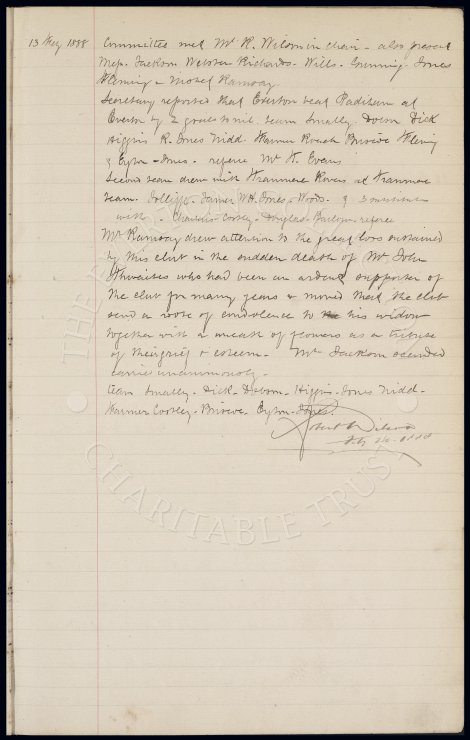 13 Feby 1888 Committee met Mr R. Wilson in chair - also present
Mess. Jackson Webster Richards - Wills - Gunning - Jones
Fleming & Moses Ramsay.
Secretary reported that Everton beat Padiham at
Everton by 2 goals to nil. team Smalley - Dobson Dick
Higgins R. Jones Fidd Farmer Briscoe Fleming
& Eyton-Jones - referee Mr Evans
Second team drew with Tranmere Rovers at Tranmere
team. Jolliffe - W.H. Jones - Woods - & 3 substitutes
with - Cassidy - Douglas - referee
Mr Ramsay drew attention to the great loss sustained
by this club in the sudden death of Mr John
Thwaites who had been an ardent supporter of
the club for many years & moved that the club
send a vote of condolence to his widow
together with a wreath of flowers as a tribute
of their grief & esteem. Mr Jackson seconded
carried unanimously.
Team Smalley - Dick - Dobson - Higgins - Jones Fidd -
Farmer - Briscoe - Eyton-Jones.
Robert Wilson
THE
CHARITABLE TRUST